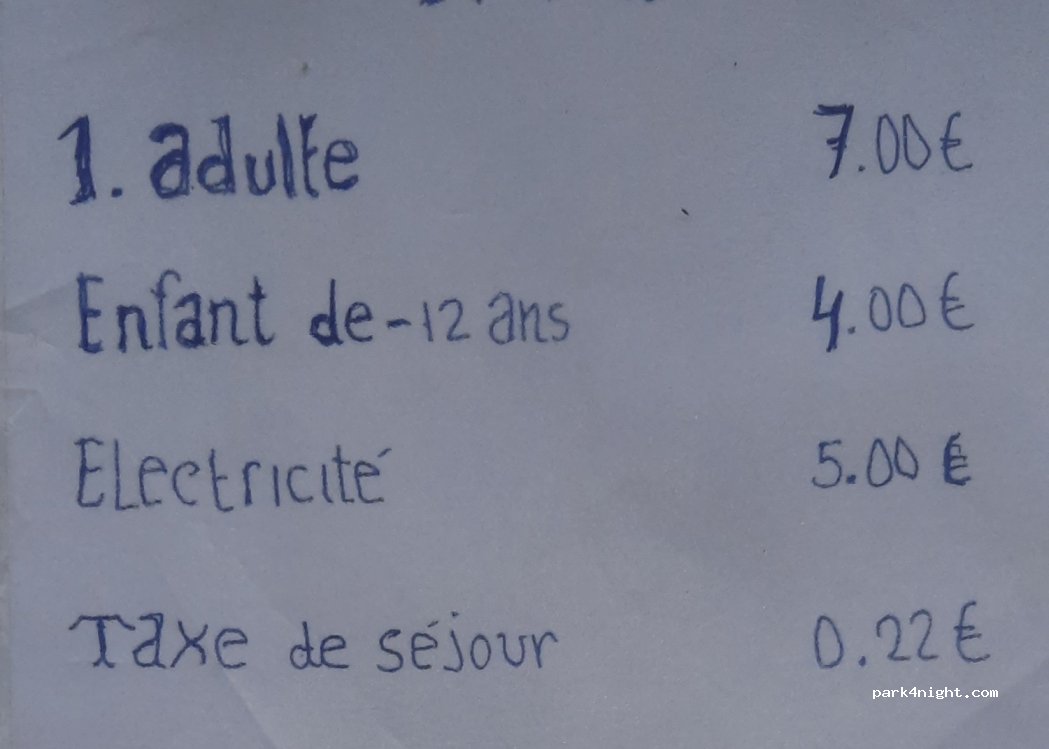 1. adulte 7.00€
Enfant de -12 ans 4.00€
Electricité 5.00 €
Taxe de séjour 0.22€
park4night.com